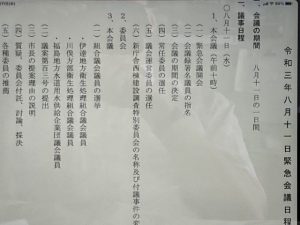 令和三年八月十一日緊急会議日程
会議の期間　八月十一日の一日間
一、議事日程
〇八月十一日（水）
1、本会議（午前十時）
（一）緊急会議開会
（二）会議録署名議員の指名
（三）会議の期間の決定
（四）常任委員の選任
（五）議会運営委員の選任
（六）新庁舎西棟建設調査特別委員会の名称及び付議事件の変
2、委員会
3、本会議
（一）組合議会議員の選挙
伊達地方衛生処理組合議会議員
川俣方部衛生処理組合議会議員
福島地方水道用水供給企業団議会議員
（二）議案第百三号の提出
（三）市長の提案理由の説明
（四）質疑、委員会付託、討論、採決
（五）各種委員の推薦